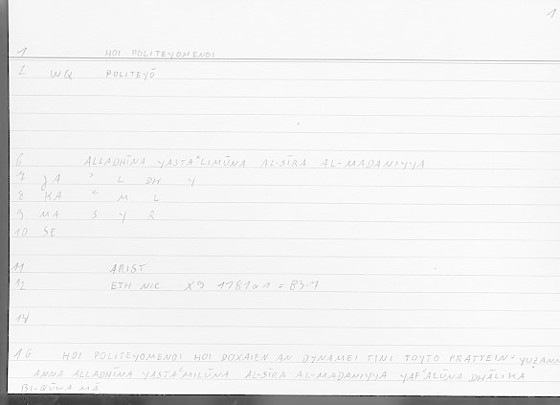 1
1 HOI POLITEYOMENOI
2 WQ POLITEYŌ
6 ALLADHĪNA YASTAʿLIMŪNA AL-SĪRA AL-MADANIYYA
7 JA ʾ L DH Y
8 KA ʿ M L
9 MA S Y R
10 SE
11 ARIST
12 ETH NIC 1181a1 = 83.7
14
16 HOI POLITEYOMENOI HOI DOXAIEN AN DYNAMEI TINI TOYTO PRATTEIN YUẒANN
ANNA ALLADHĪNA YASTAʿMILŪNA AL-SĪRA AL-MADANIYYA YAFʿALŪNA DHĀLIKA
BI-QŪWA MĀ